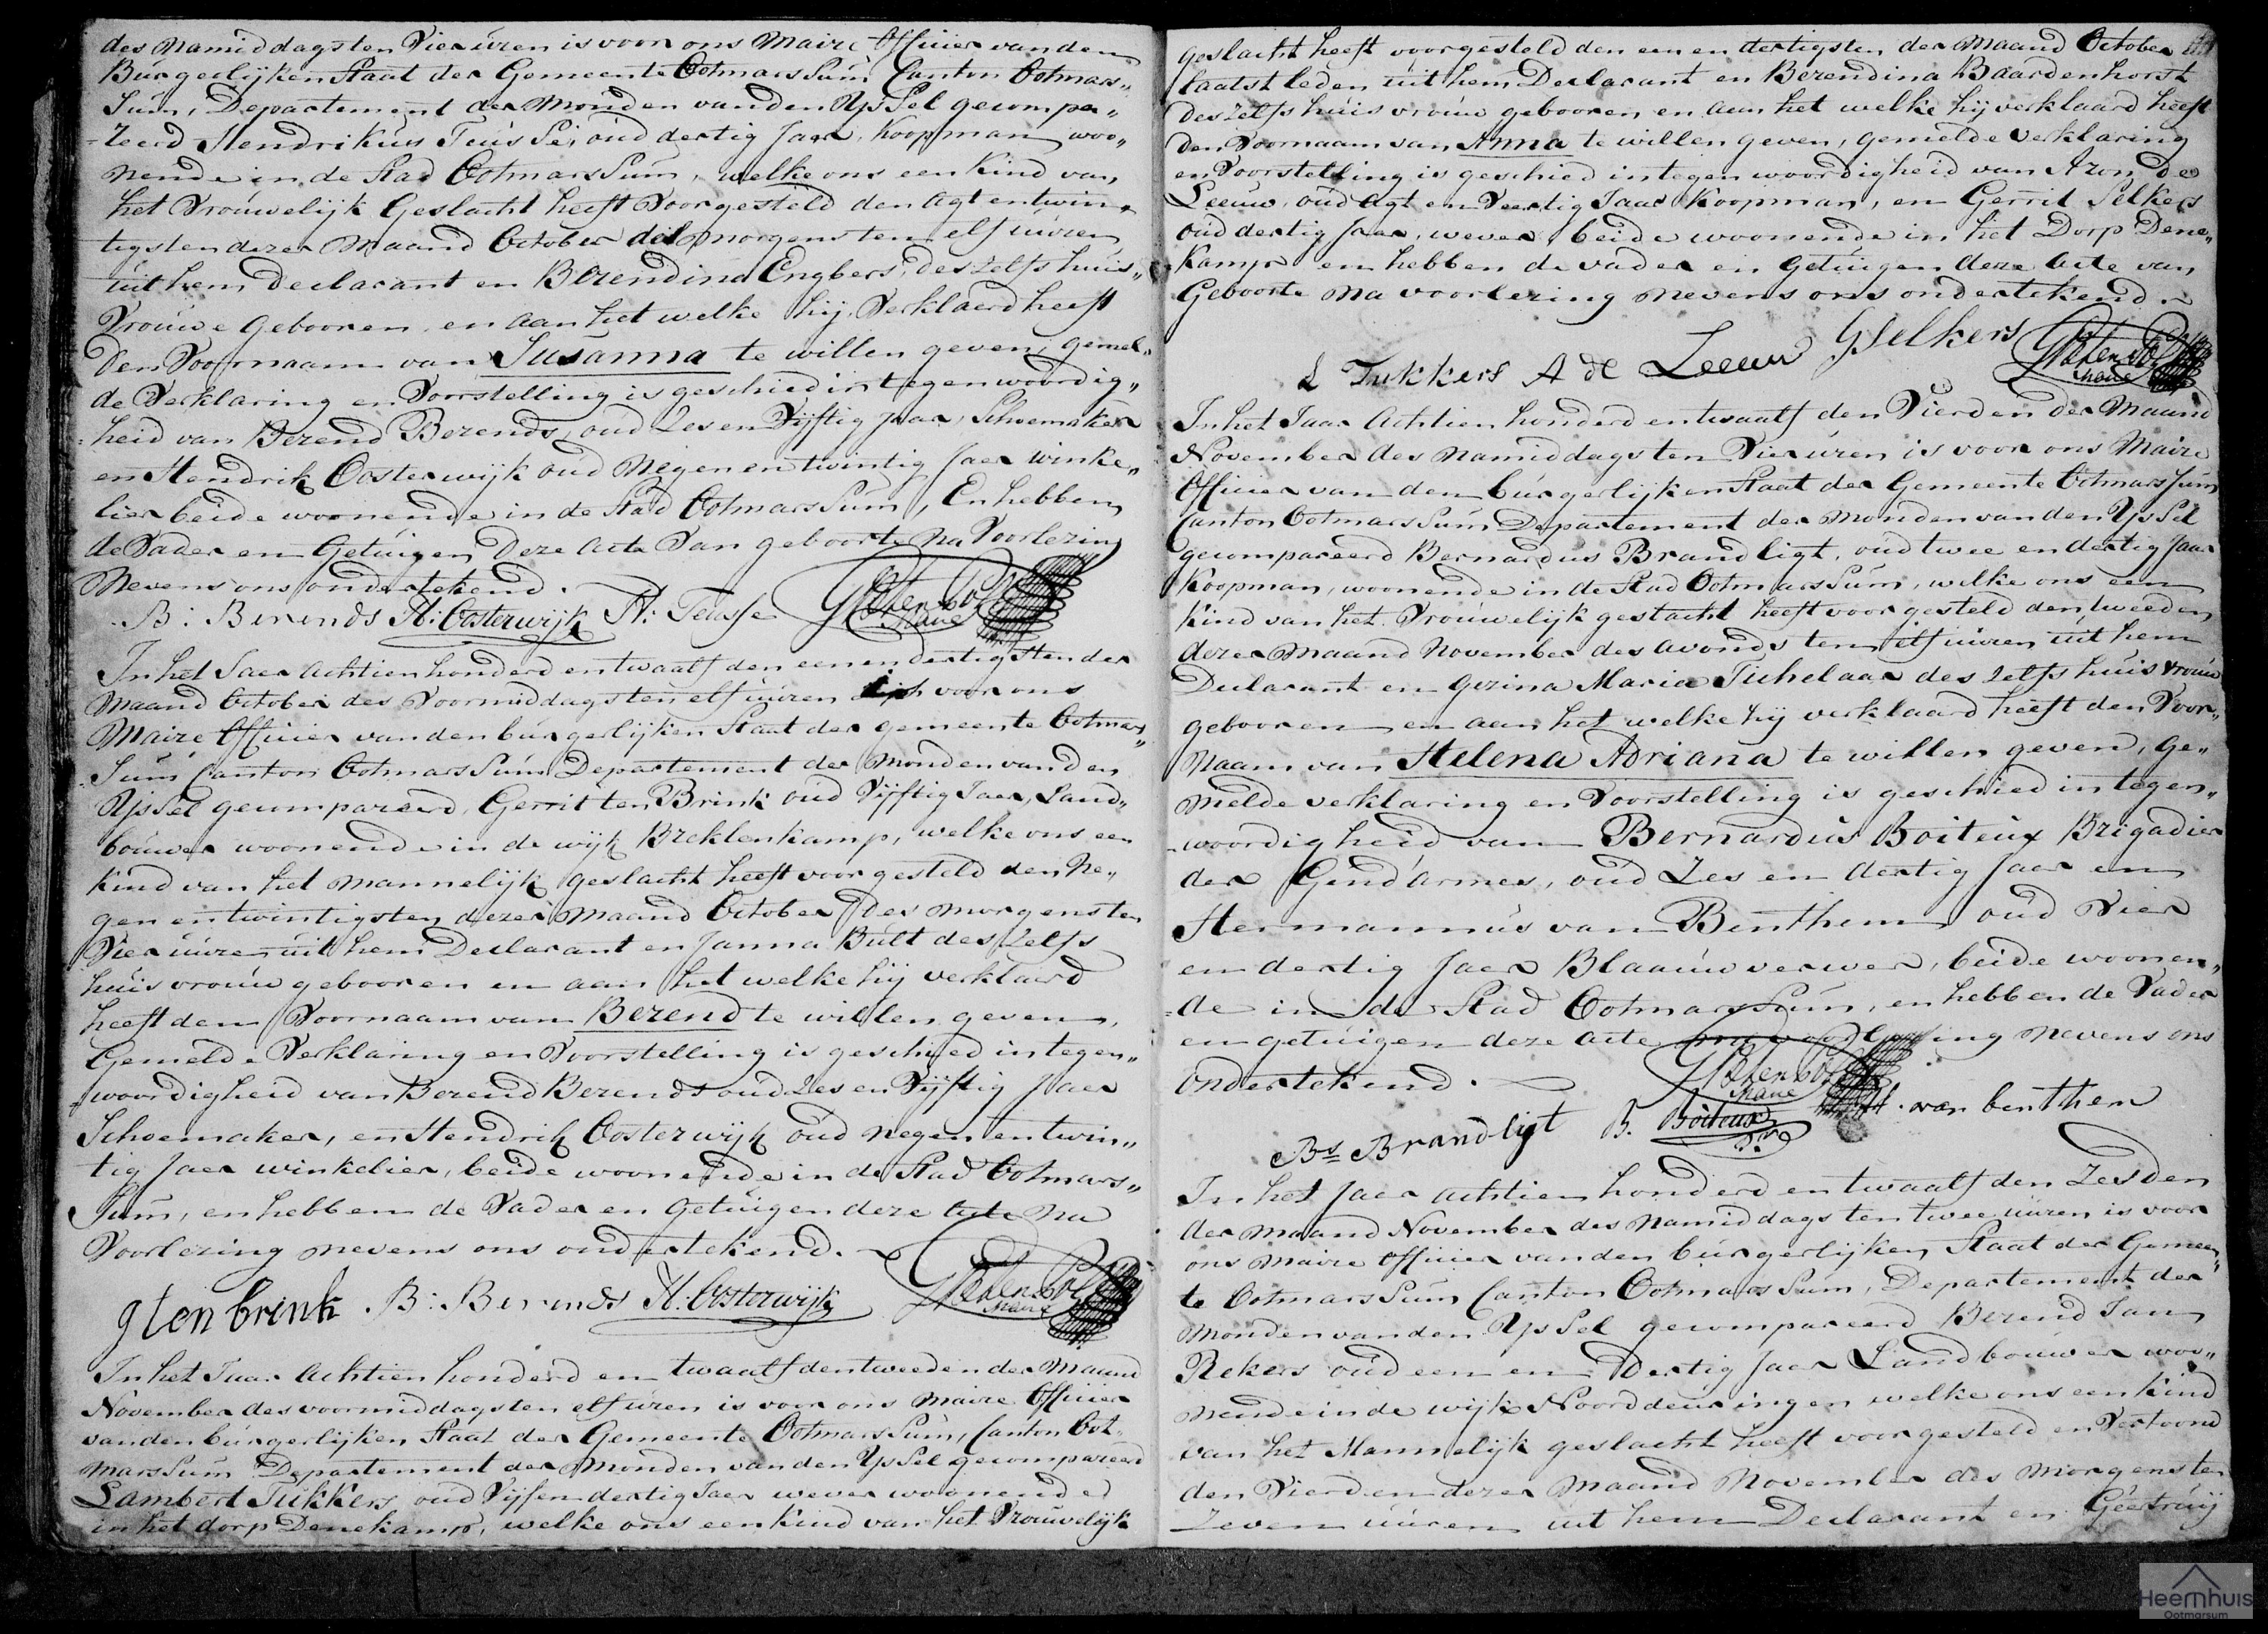 des namiddags ten Vier uren is voor ons Maire Officier van den
Burgerlijken Staat der Gemeente Ootmarssum Canton Ootmars„
sum, Departement der Monden van den Yssel gecompa„
reerd Hendrikus Teussé, oud dertig Jaar, Koopman woo„
nende in de Stad Ootmarssum, welke ons een Kind van
het Vrouwelijk Geslacht heeft Voorgesteld den agt en twin„
tigsten dezer Maand October des morgens ten elf uuren
uit hem declarant en Berendina Engbers, deszelfs huis„
Vrouwe gebooren en aan het welke hij Verklaerd heeft
den Voornaam van Susanna te willen geven, gemel„
de Verklaring en Voorstelling is geschied in tegenwoordig„
heid van Berend Berends, oud Zes en Vijftig Jaar, Schoemaker
en Hendrik Oosterwijk oud Negen en twintig Jaer winke„
lier beide woonende in de Stad Ootmarssum, En hebben
de Vader en Getuigen Deze Acte Van geboorte Na Voorlezing
Nevens ons ondertekend.
B: Berends H: Oosterwijk H: Teusse
Maire
In het Jaer Achtien honderd en twaalf den een en dertigsten der
Maand October des Voormiddags ten elf uuren is voor ons
Maire Officier van den burgerlijken Staat der gemeente Ootmars„
sum Canton Ootmarssum Departement der Monden van den
Yssel gecompareerd, Gerrit ten Brink oud Vijftig Jaer, Land„
bouwer woonende in de wijk Breklenkamp, welke ons een
Kind van het Mannelijk geslacht heeft voorgesteld den Ne„
gen en twintigsten dezer Maand October des morgens ten
Vier uure uit hem Declarant en Janna Bult des Zelfs
huisvrouw gebooren en aan het welke hij verklaerd
heeft den Voornaam van Berend te willen geven,
Gemelde Verklaring en Voorstelling is geschied in tegen„
woordigheid van Berend Berends oud Zes en Vijftig Jaer
Schoemaker, en Hendrik Oosterwijk oud negen en twin„
tig Jaer winkelier, beide woonende in de Stad Ootmars„
sum, en hebben de Vader en Getuigen deze Acte Na
Voorlezing nevens ons ondertekend.
g ten brink B: Berends H: Oosterwijk
Maire
In het Jaar Achtien honderd en twaalf den tweeden der Maand
November des voormiddags ten elf uren is voor ons Maire Officier
van den burgerlijken Staat der Gemeente Ootmarssum, Canton Oot„
marssum Departement der Monden van den Yssel gecompareerd
Lambert Tukkers oud Vijf en dertig Jaer wever woonende
in het dorp Denekamp, welke ons een Kind van het Vrouwelijk
geslacht heeft voorgesteld den een en dertigsten der Maand October
laatstleden uit hem Declarant en Berendina Baardenhorst
des zelfs huisvrouw gebooren en aan het welke hij verklaard heeft
den Voornaam van Anna te willen geven, gemelde verklaring
en Voorstelling is geschied in tegenwoordigheid van Aron de
Leeuw, oud agt en Veertig Jaar Koopman, en Gerrit Selkers
oud dertig Jaar, wever, beide woonende in het Dorp Dene„
kamp en hebben de vader en getuigen deze Acte van
Geboorte na voorlezing nevens ons ondertekend
L Tukkers A de Leeuw G Selkers
Maire
In het Jaar Achtien honderd en twaalf den Vierden der Maand
November des Namiddags ten Vier uren is voor ons Maire
Officier van den burgerlijken Staat der Gemeente Ootmarssum
Canton Ootmarssum Departement der Monden van den Yssel
gecompareerd Bernardus Brandligt, oud twee en dertig Jaar
Koopman, woonende in de Stad Ootmarssum, welke ons een
Kind van het Vrouwelijk geslacht heeft voorgesteld den tweeden
dezer Maand November des avonds ten elf uuren uit hem
Declarant en Gezina Maria Tichelaar des zelfs huisvrouw
gebooren en aan het welke hij verklaard heeft den Voor„
Naam van Helena Adriana te willen geven, Ge„
melde verklaring en Voorstelling is geschied in tegen„
woordigheid van Bernardus Boiteux Brigadier
der Gend'armes, oud Zes en dertig Jaer en
Hermannus van Benthem oud Vier
en dertig Jaer Blaauwverwer, beide woonen„
de in de Stad Ootmarssum, en hebben de Vader
en getuigen deze Acte na voorlezing nevens ons
Ondertekend.
Maire
Bs Brandligt B. Boiteux H. van benthem
In het Jaer Achtien honderd en twaalf den Zesden
der Maand November des Namiddags ten twee uuren is voor
ons Maire Officier van den burgerlijken Staat der Gemeen„
te Ootmarssum Canton Ootmarssum, Departement der
Monden van den Yssel gecompareerd Berend Jan
Rekers oud een en Dertig Jaer Landbouwer woo„
nende in de wijk Noorddeuringen welke ons een Kind
van het Mannelijk geslacht heeft voorgesteld en Vertoond
den Vierden dezer Maand November des Morgens ten
Zeven uuren uit hem Declarant en Geertruij
Heemhuis
Ootmarsum